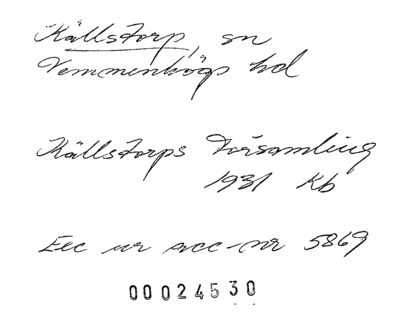 Källstorp, sn
Vemmenhögs hd
Källstorps Församling
1931 Kb
Exc ur acc-nr 5869
00024530